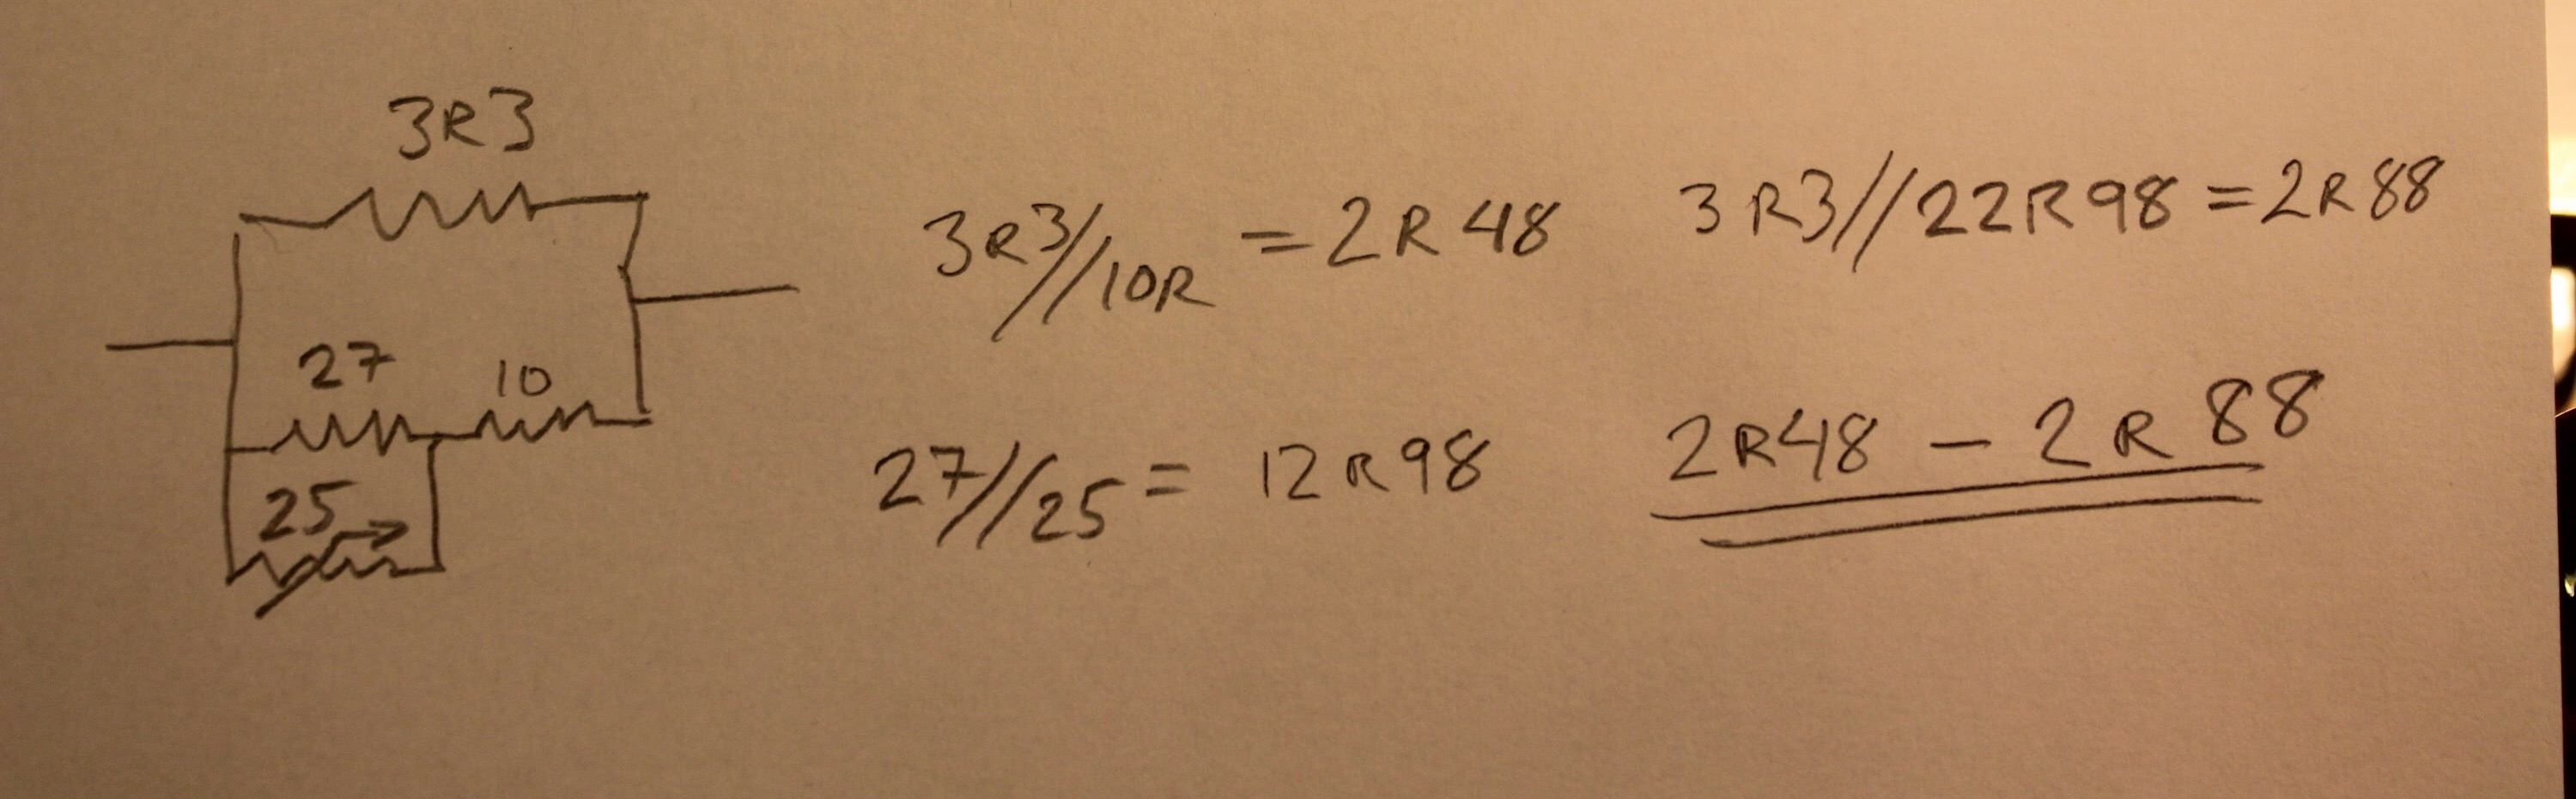 3R3
27 10
25
3R3//10R = 2R48
27//25 = 12R98
3R3//22R98 = 2R88
2R48 – 2R88